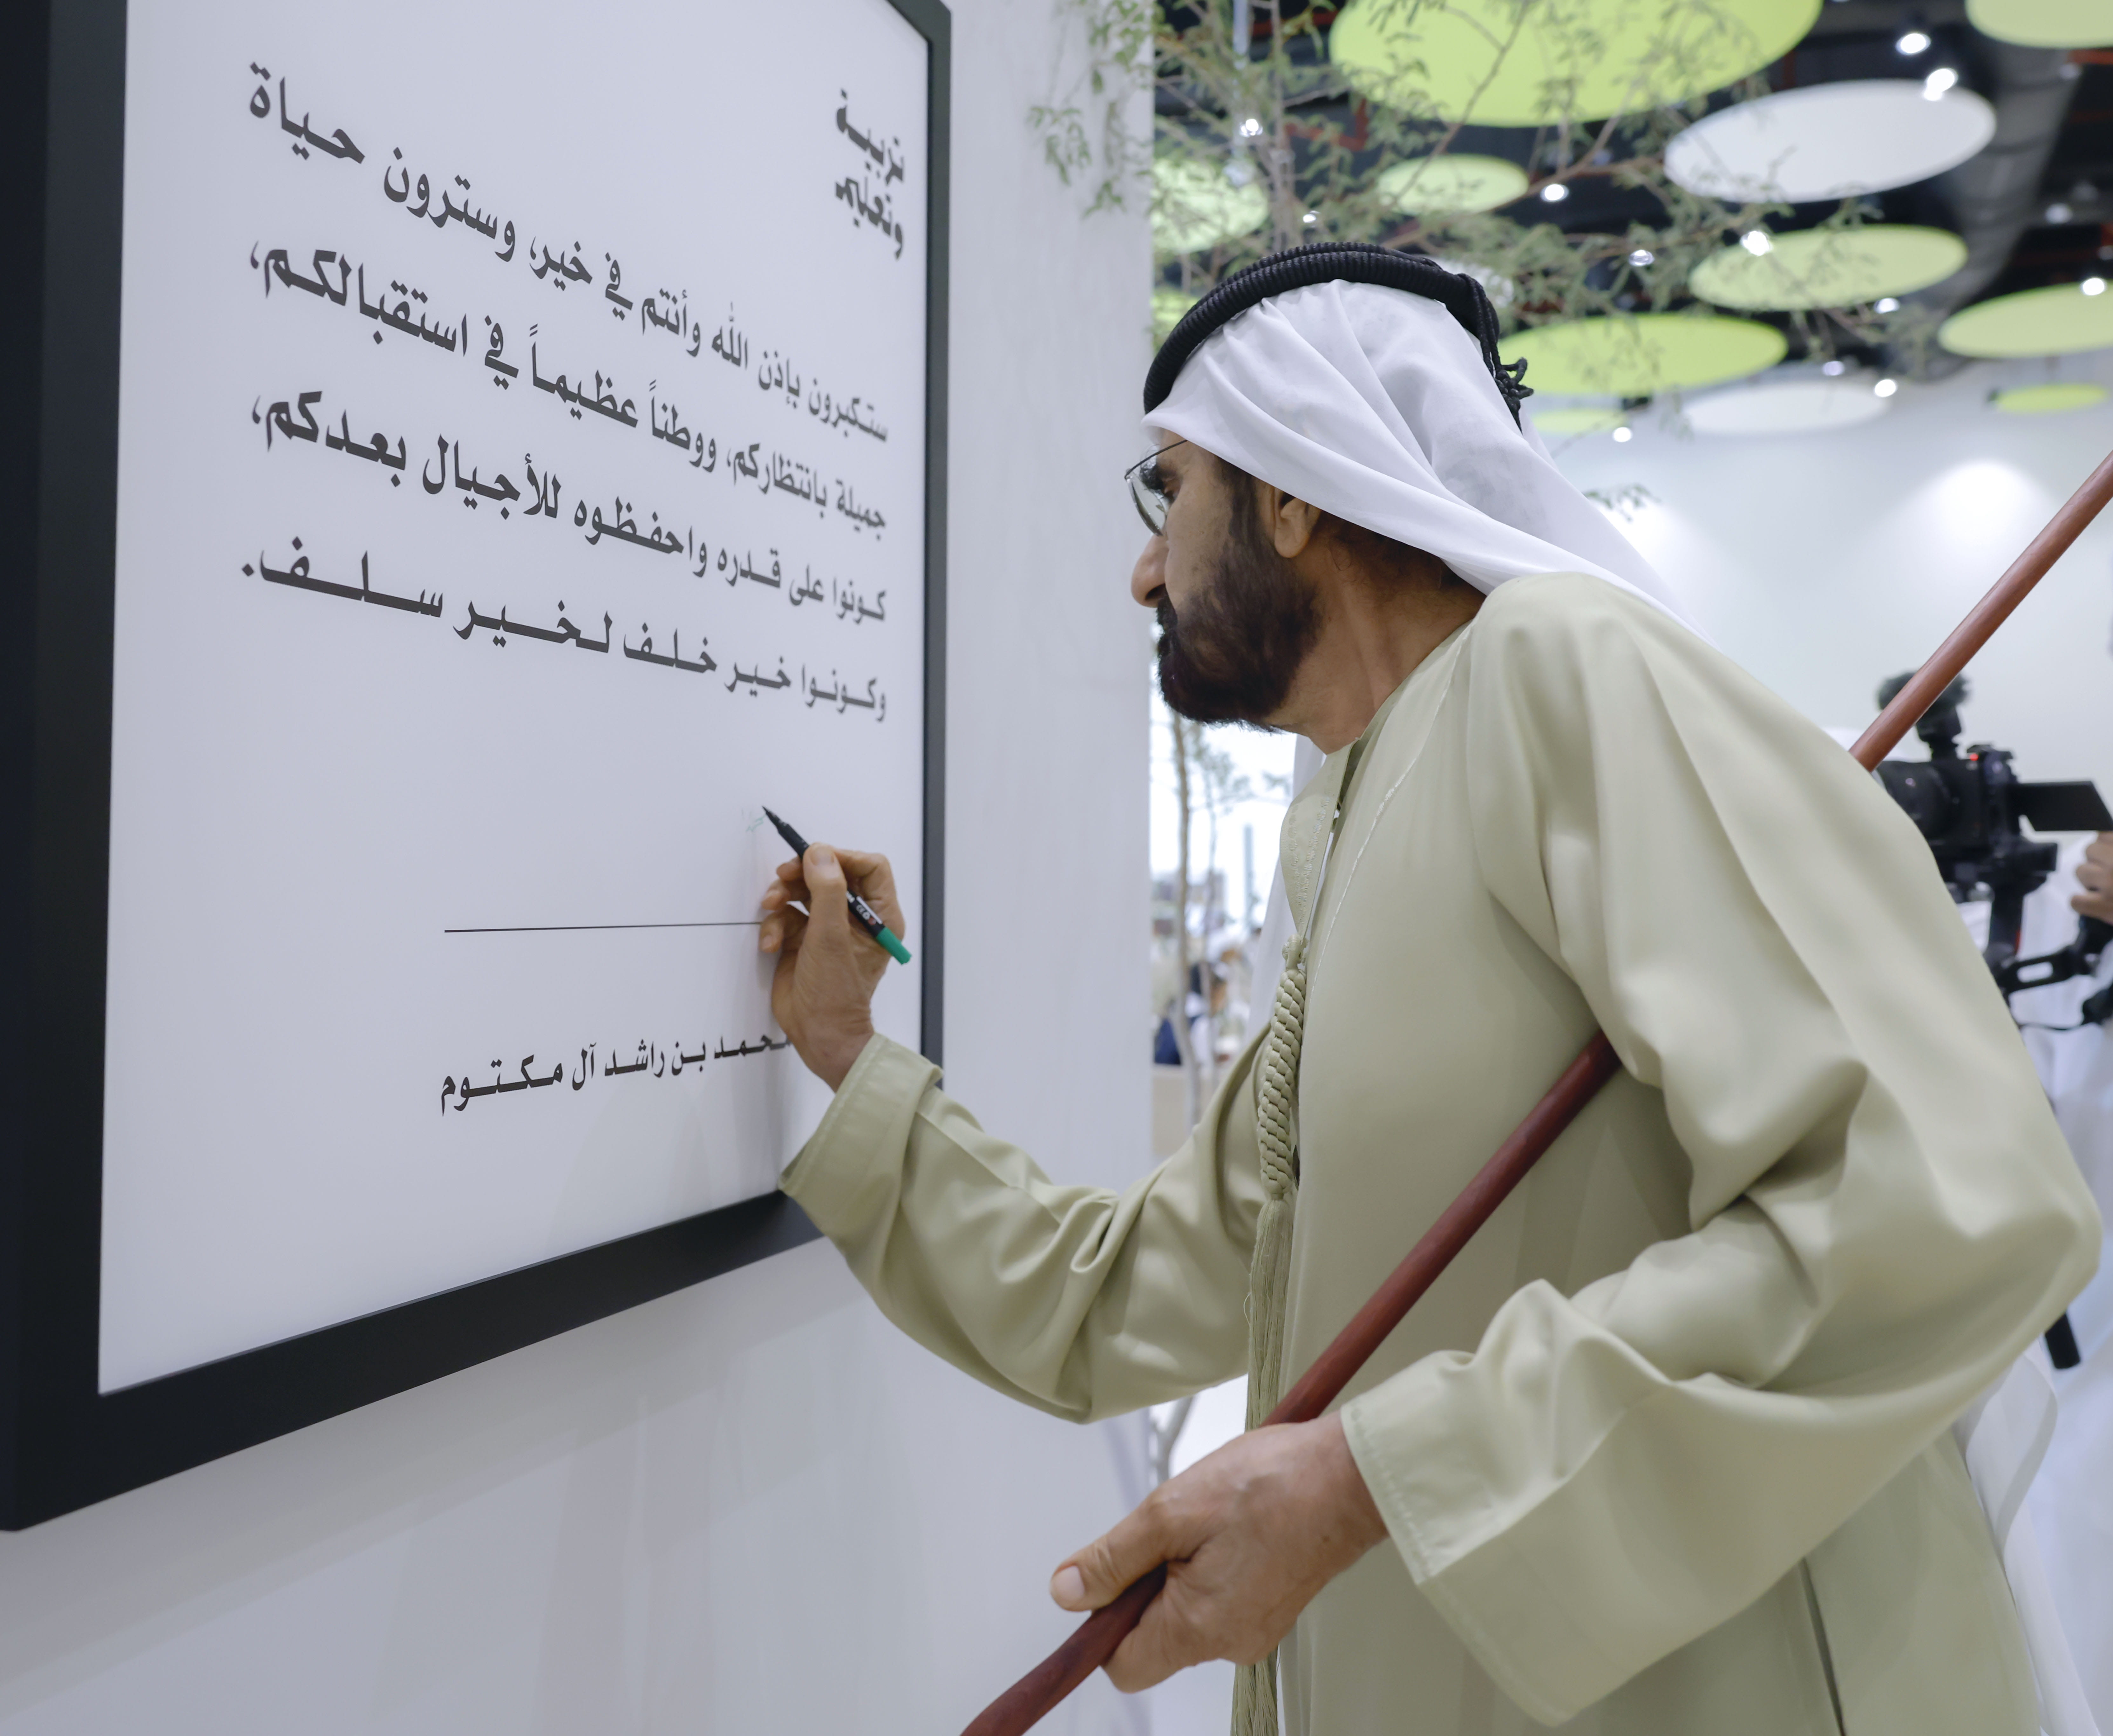 تربية
وتعليم
ستكبرون بإذن الله وأنتم في خير، وسترون حياة
جميلة بانتظاركم، ووطناً عظيماً في استقبالكم،
كونوا على قدره واحفظوه للأجيال بعدكم،
وكونوا خير خلف لخير سلف.
محمد بن راشد آل مكتوم